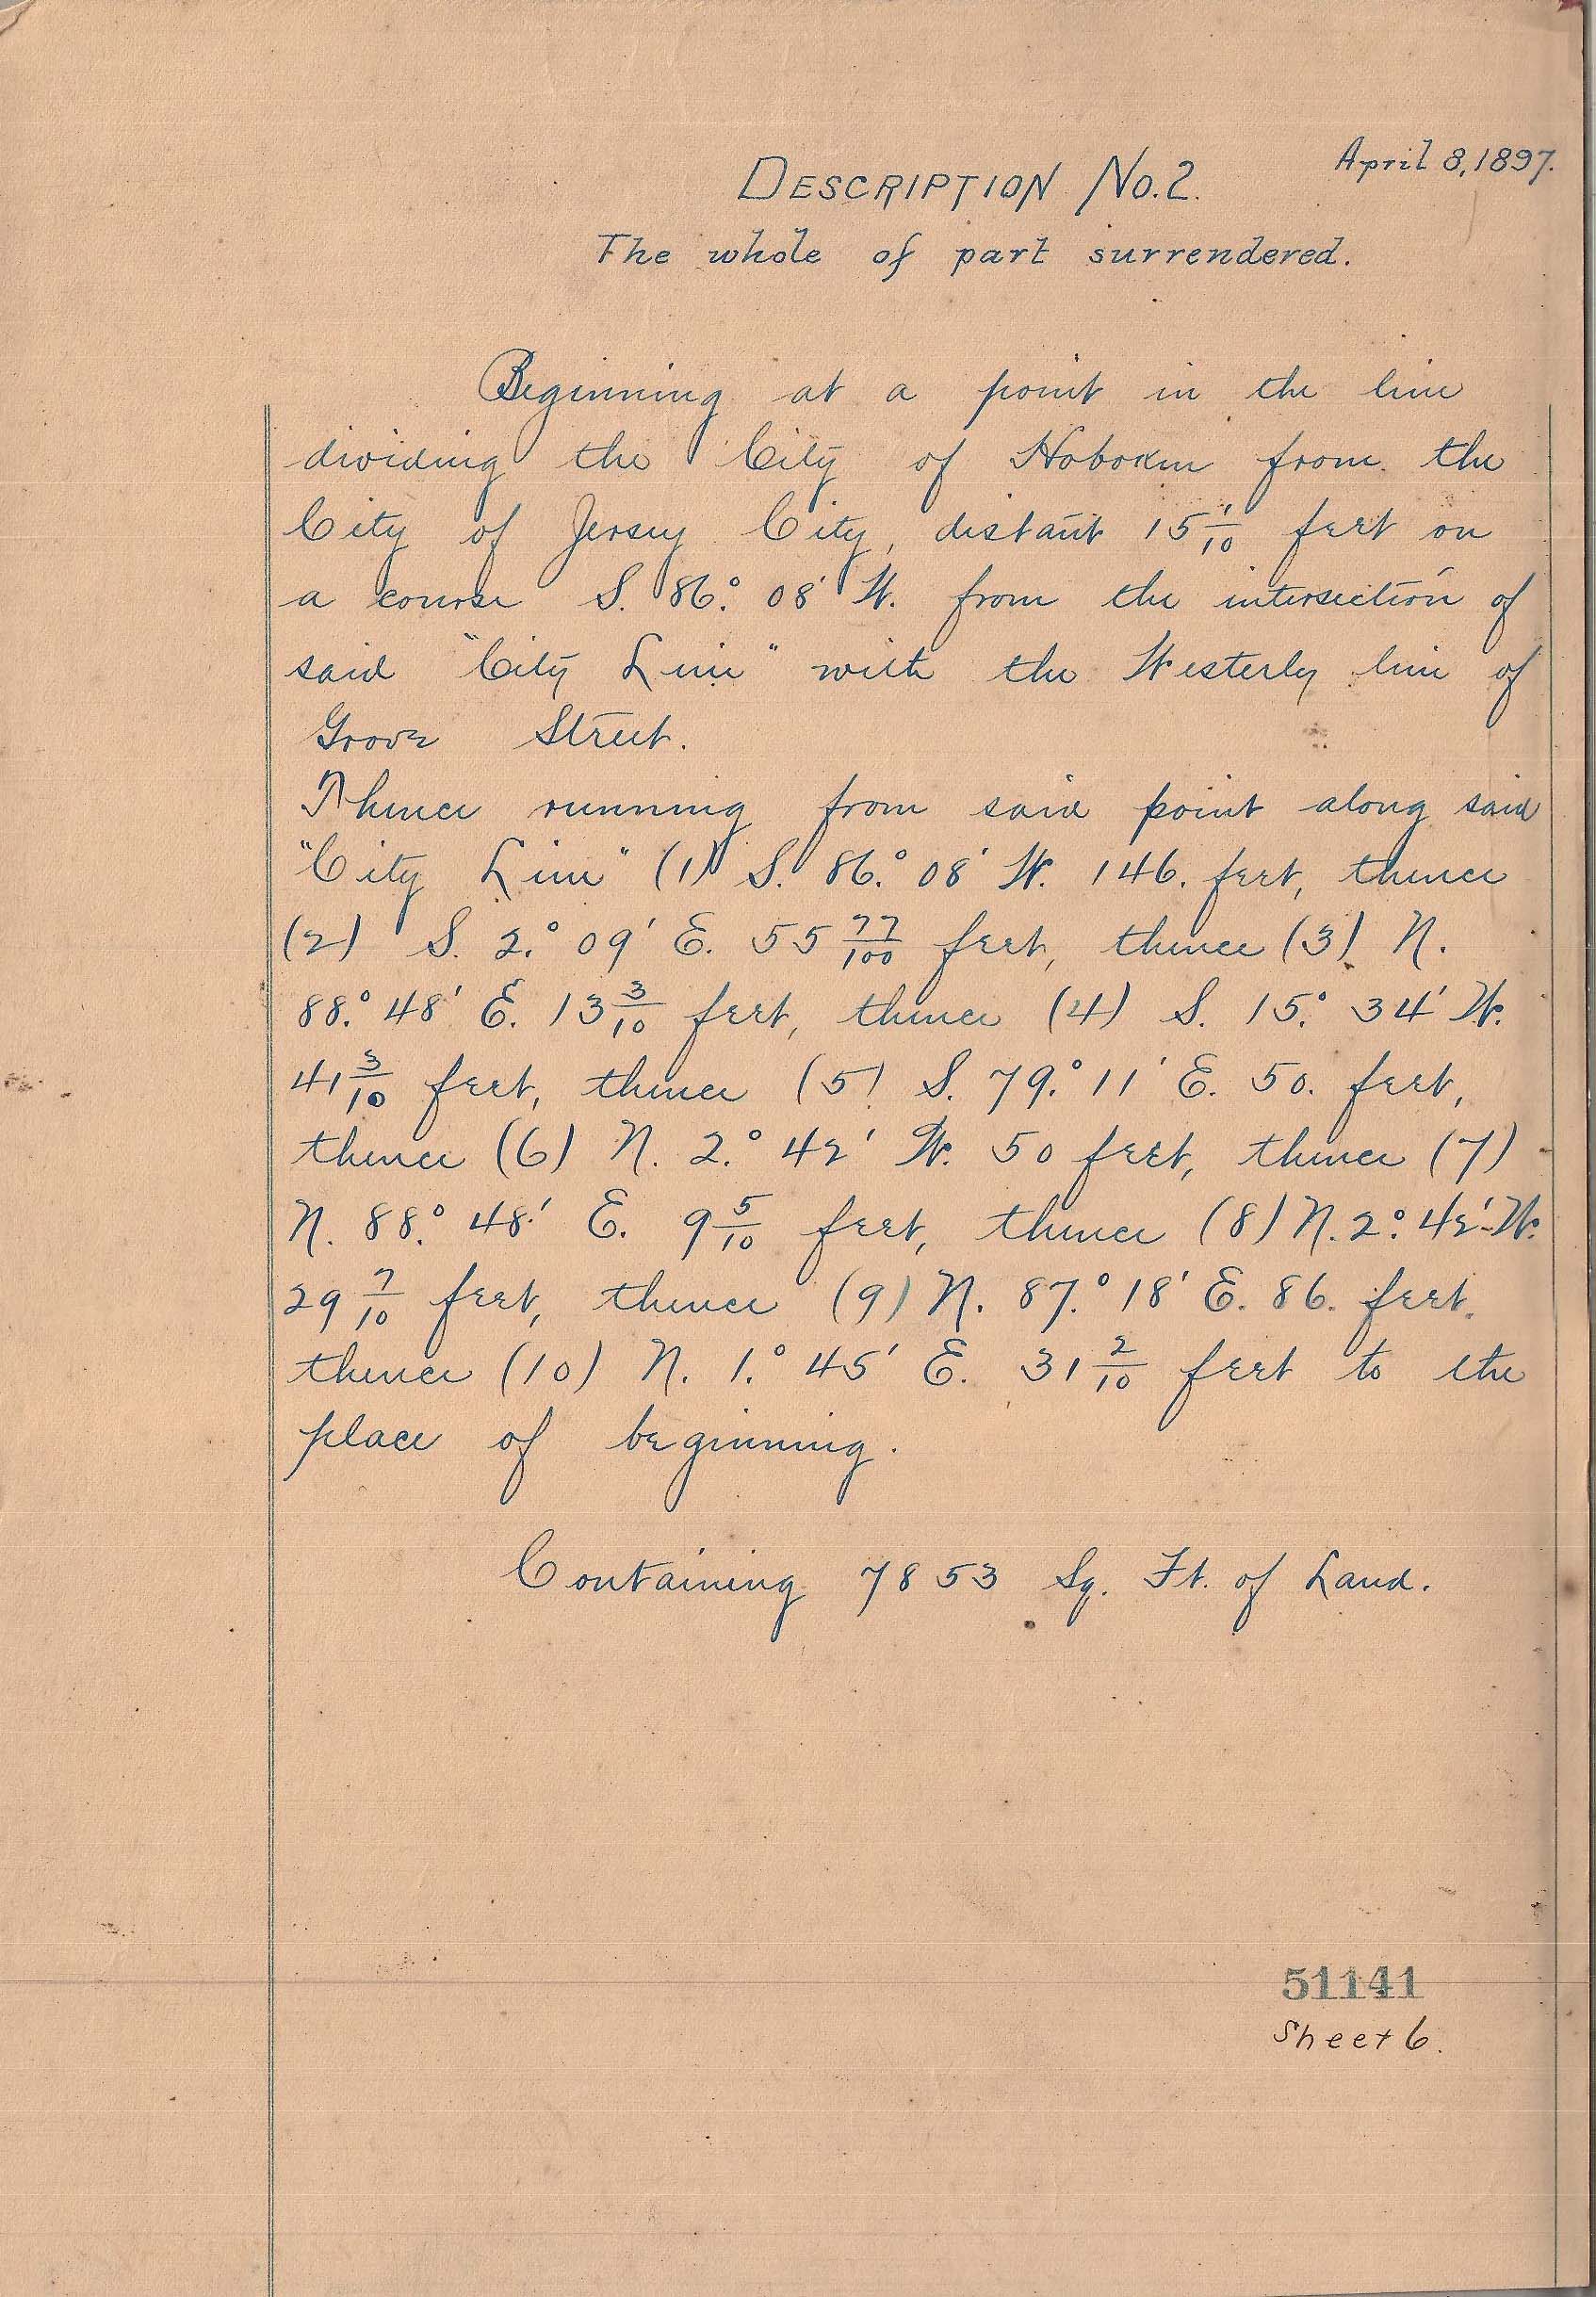 April 8, 1897.
DESCRIPTION No. 2.
The whole of part surrendered.
Beginning at a point in the line
dividing the City of Hoboken from the
City of Jersey City, distant 15 1/10 feet on
a course S. 86.° 08' W. from the intersection of
said "City Line" with the Westerly line of
Grove Street.
Thence running from said point along said
"City Line" (1) S. 86.° 08' W. 146. feet, thence
(2) S. 2.° 09' E. 55 77/100 feet, thence (3) N.
88.° 48' E. 13 3/10 feet, thence (4) S. 15.° 34' W.
41 3/10 feet, thence (5) S. 79.° 11' E. 50. feet,
thence (6) N. 2.° 42' W. 50 feet, thence (7)
N. 88.° 48.' E. 9 5/10 feet, thence (8) N. 2.° 42' W.
29 7/10 feet, thence (9) N. 87.° 18' E. 86. feet,
thence (10) N. 1.° 45' E. 31 2/10 feet to the
place of beginning.
Containing 7853 Sq. Ft. of Land.
51141
Sheet 6.